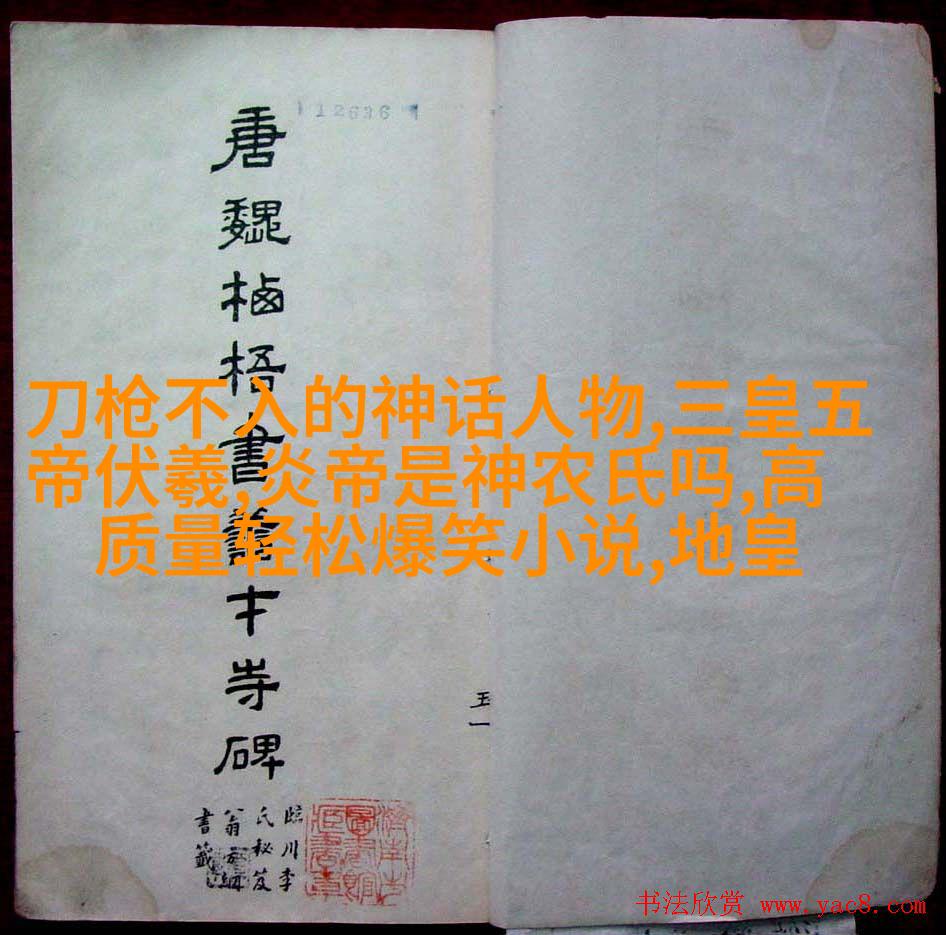 12636
唐魏栖梧書善才寺碑
刀枪不入的神话人物,三皇五
帝伏羲,炎帝是神农氏吗,高
质量轻松爆笑小说,地皇
臨川李
氏秘笈
翁方綱
書籤
濟南市
圖書館
藏書章
书法欣赏 www.yac8.com